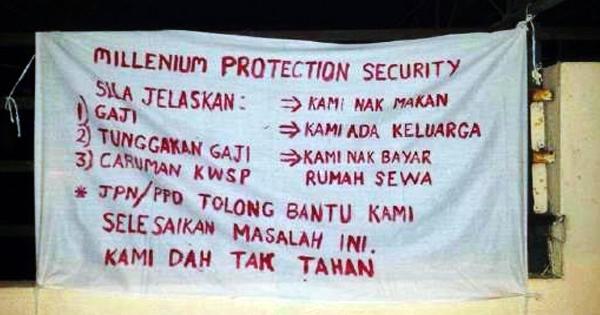 MILLENIUM PROTECTION SECURITY
SILA JELASKAN:
1) GAJI
2) TUNGGAKAN GAJI
3) CARUMAN KWSP
⇒ KAMI NAK MAKAN
⇒ KAMI ADA KELUARGA
⇒ KAMI NAK BAYAR
RUMAH SEWA
* JPN/PPD TOLONG BANTU KAMI
SELESAIKAN MASALAH INI.
KAMI DAH TAK TAHAN